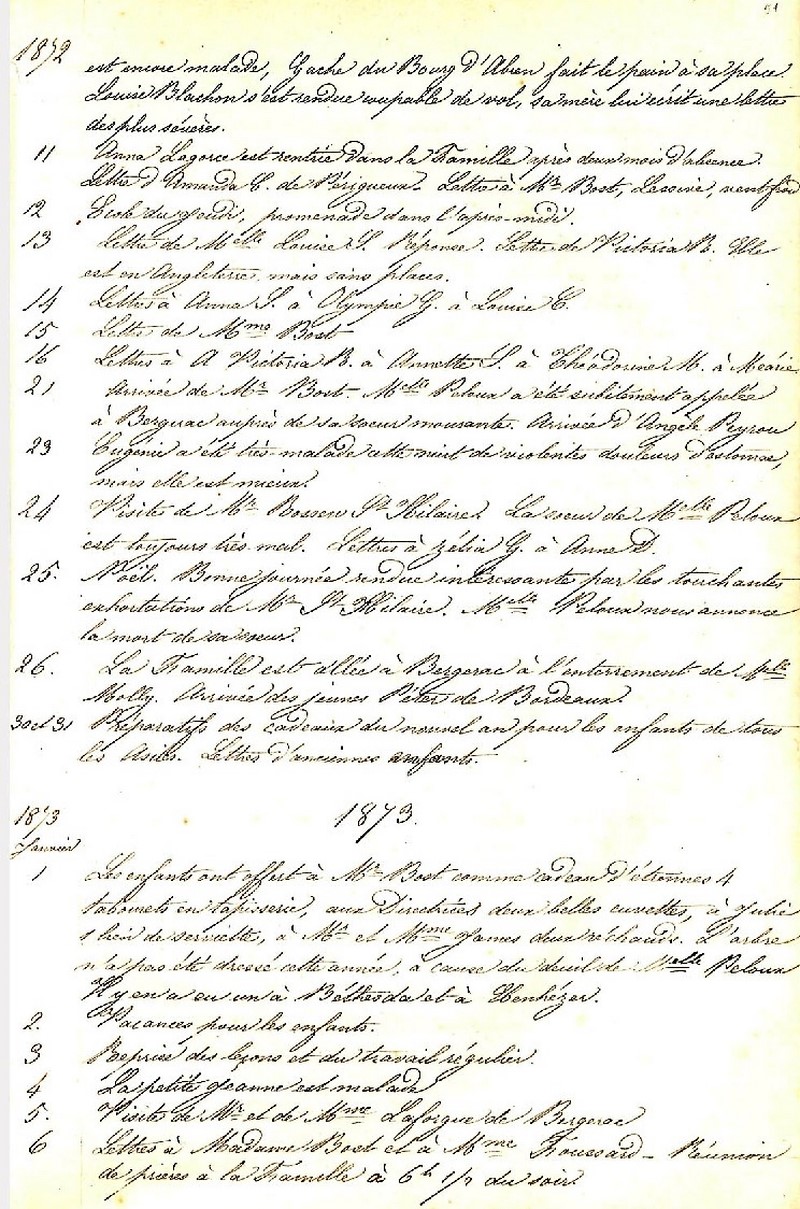 1872
est encore malade, Gache du Bourg d'Abren fait le pain à sa place.
Louise Blachon s'est rendue coupable de vol, sa mère lui écrit une lettre
des plus sévères.
11 Anna Lagorce est rentrée dans la Famille après deux mois d'absence.
Lettre d'Amanda C. de Périgueux. Lettre à Mr Bost, Lessive, vent froid
12 École du Jeudi, promenade dans l'après-midi.
13 Lettre de Melle Louise S. Réponse. Lettre de Victoria R. Elle
est en Angleterre mais sans places.
14 Lettres à Anna S. à Olympie G. à Louise C.
15 Lettre de Mme Bost
16 Lettres à A Victoria R. à Annette S. à Théodorine M. à Méarie
21 Arrivée de Mr Bost. Melle Peloux a été subitement appelée
à Bergerac auprès de sa soeur mourante. Arrivée d'Angèle Peyrou
23 Eugénie a été très malade cette nuit de violentes douleurs d'estomac,
mais elle est mieux.
24 Visite de Mr Rossen St Hilaire. La soeur de Melle Peloux
est toujours très mal. Lettres à Zélia G. à Anne D.
25. Noël. Bonne journée rendue intéressante par les touchantes
exhortations de Mr St Hilaire. Melle Peloux nous annonce
la mort de sa soeur.
26. La Famille est allée à Bergerac à l'enterrement de Melle
Molly. Arrivée des jeunes Péter de Bordeaux.
30 et 31 Préparatifs des cadeaux du nouvel an pour les enfants de tous
les Asiles. Lettres d'anciennes enfants.
1873
1873.
Janvier
1 Les enfants ont offert à Mr Bost comme cadeau d'étrennes 4
tabourets en tapisserie, aux Directrices deux belles cuvettes, à Julie
1 lien de serviette, à Mr et Mme James deux réchauds. L'arbre
n'a pas été dressé cette année, à cause du deuil de Melle Peloux
Il y en a eu un à Béthesda et à Ebenhézer.
2. Vacances pour les enfants.
3 Reprise des leçons et du travail régulier.
4 La petite Jeanne est malade
5. Visites de Mr et de Mme Laforgue de Bergerac
6 Lettres à Madame Bost et à Mme Froussard - Réunion
de prières à la Famille à 6h 1/2 du soir.